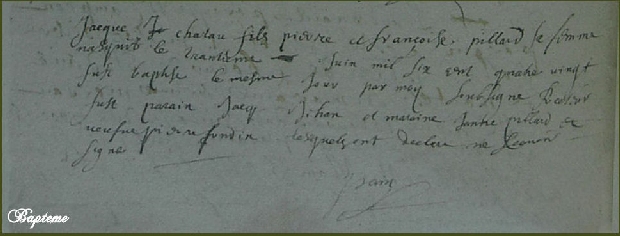 Jacque chatau fils pierre et françoise pillard sa femme
nasquit le trantieme Juin mil six cent quatre vingt
fust baptise le mesme Jour par moy soubsigne Recteur
fust parain Jacq Jihan et maraine Janne pillard
pierre fondin lesquels ont declare ne
signer
Bapteme